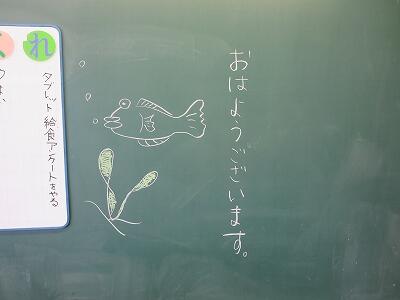 おはようございます。
れ
タブレット 給食アンケートをやる